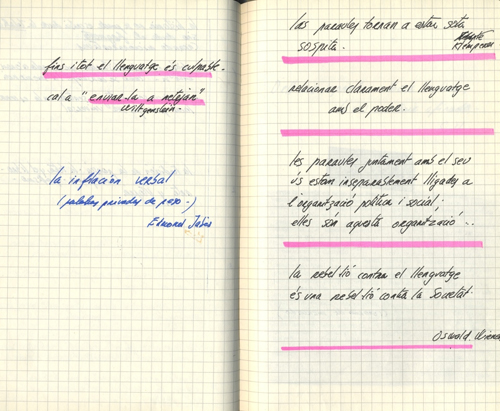 fins i tot el llenguatge és culpable.
cal a "enviar-la a netejar"
Wittgenstein.
la inflación verbal
(palabras privadas de peso.)
Edmond Jabès
les paraules tornan a estar sota
sospita.
Klemperer
relacionar clarament el llenguatge
amb el poder.
les paraules juntament amb el seu
ús estan inseparablement lligades a
l'organització política i social;
elles són aquesta organització...
la rebel·lió contra el llenguatge
és una rebel·lió contra la Societat.
Oswald Wiener